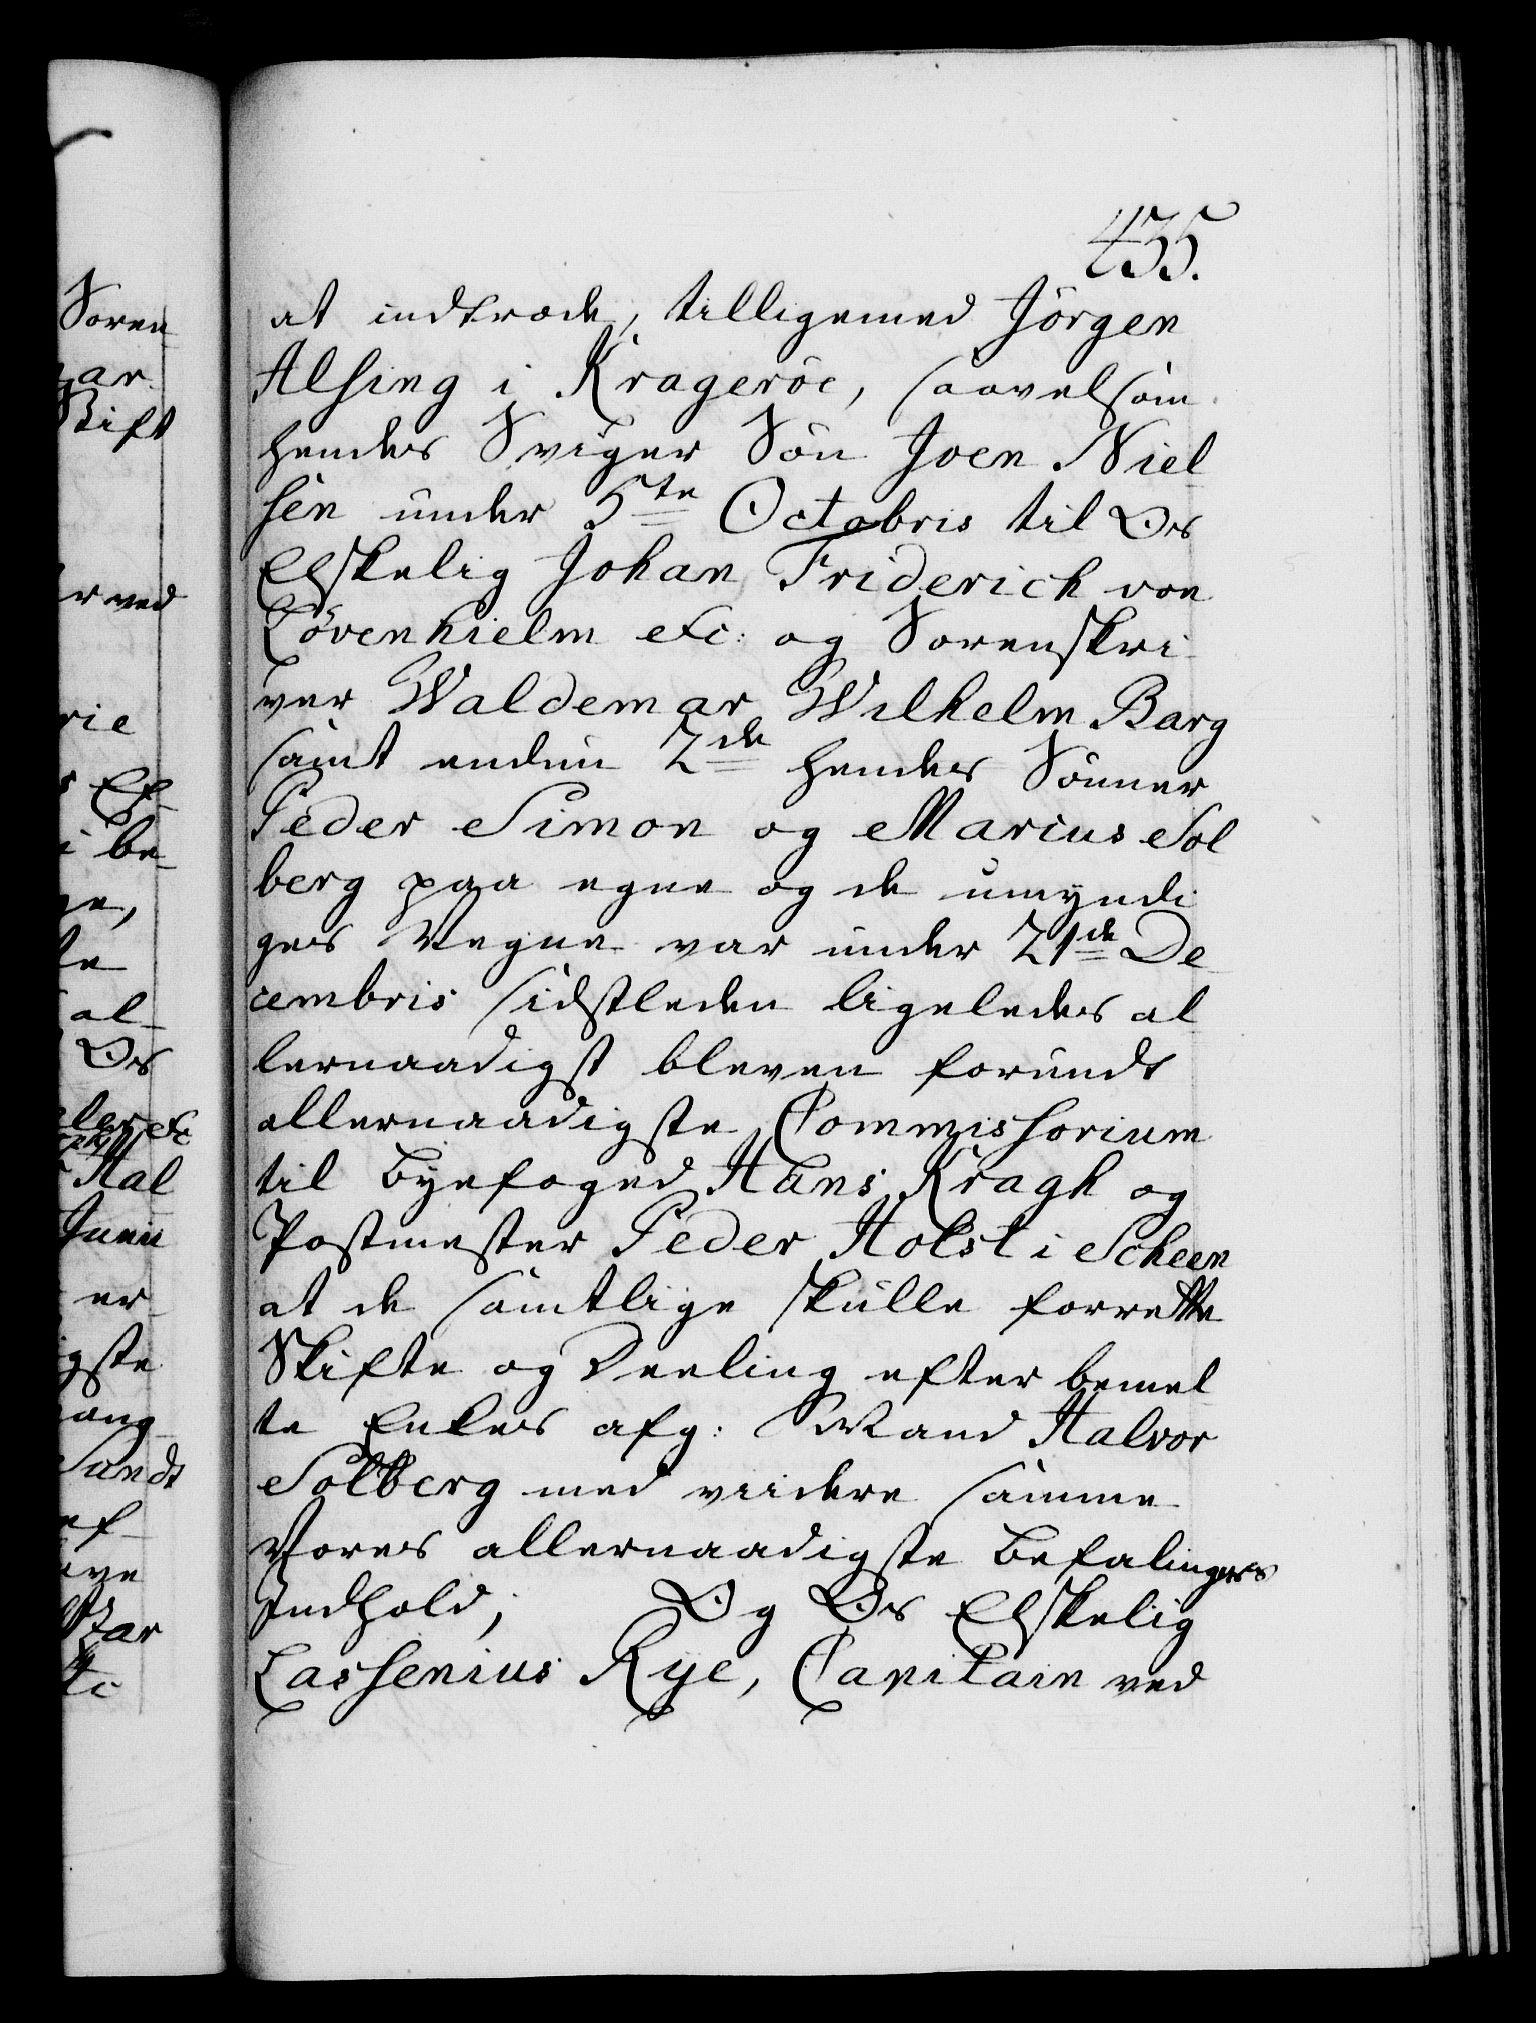 435.
at indtræde, tilligemed Jörgen
Alsing i Krageröe, saavelsom
hendes Sviger Sön Joen Niel
sen under 5te Octobris til Os
Elskelig Johan Friderich von
Lövenhielm etc: og Sorenskri
ver Waldemar Wilhelm Barg
samt endnu 2de hendes Sönner
Peder Simon og Marius Sol
berg paa egne og de umyndi
ges Vegne var under 21de De
cembris sidstleden ligeledes al
lernaadigst bleven forundt
allernaadigste Commissorium
til Byefoged Hans Kragh og
Postmester Peder Holst i Scheen
at de samtlige skulle forrette
Skifte og Deeling efter bemel
te Enkes afg: Mand Halvor
Solberg med viidere samme
Vores allernaadigste Befalinges
Indhold; Og Os Elskelig
Cassenius Rye, Capitain ved
Soren
Skift
ved
rie
Ef-
i be-
al-
Os
Hal
Junii
er
gste
Sundt